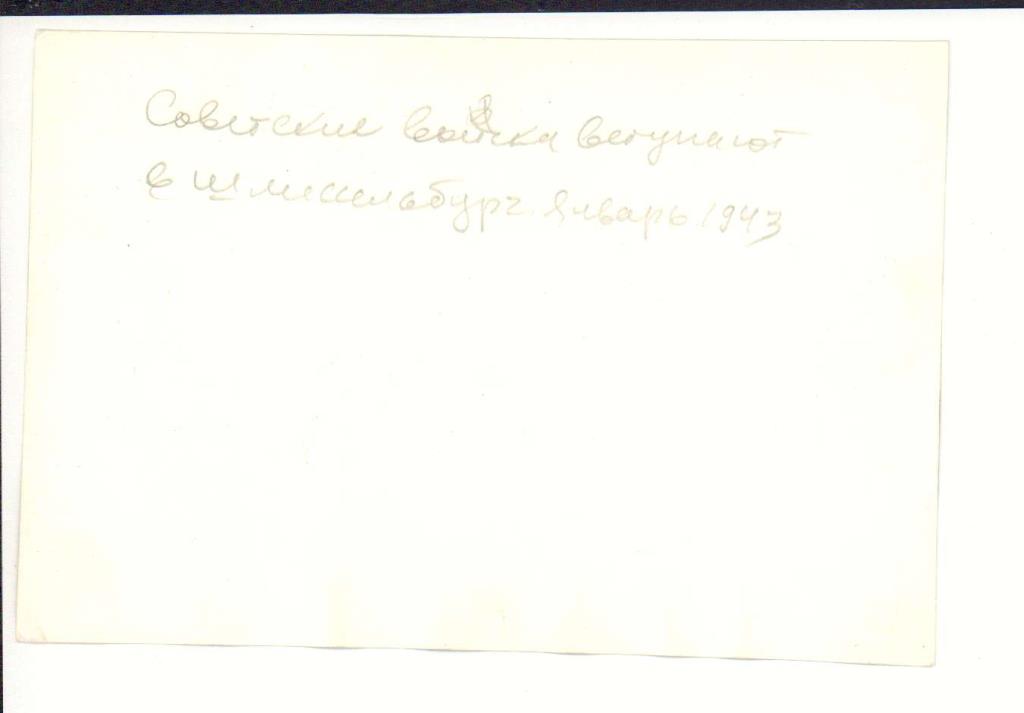 Советские войска вступают
в Шлиссельбург. Январь 1943